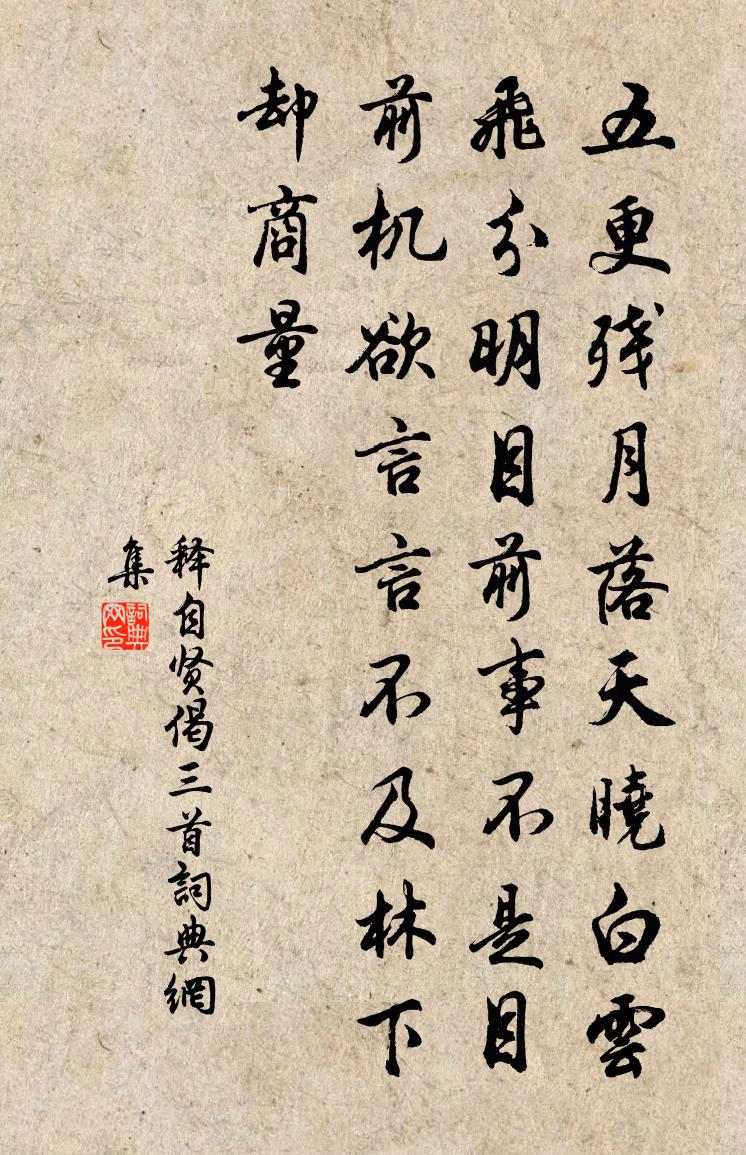 五更残月落天曉白雲
飛分明目前事不是目
前机欲言言不及林下
却商量
释自贤偈三首詞典網
集
詞典
网印